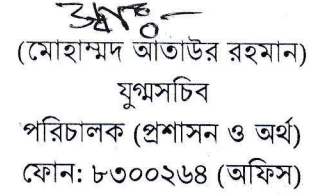 (মোহাম্মদ আতাউর রহমান)
যুগ্মসচিব
পরিচালক (প্রশাসন ও অর্থ)
ফোন: ৮৩০০২৬৪ (অফিস)